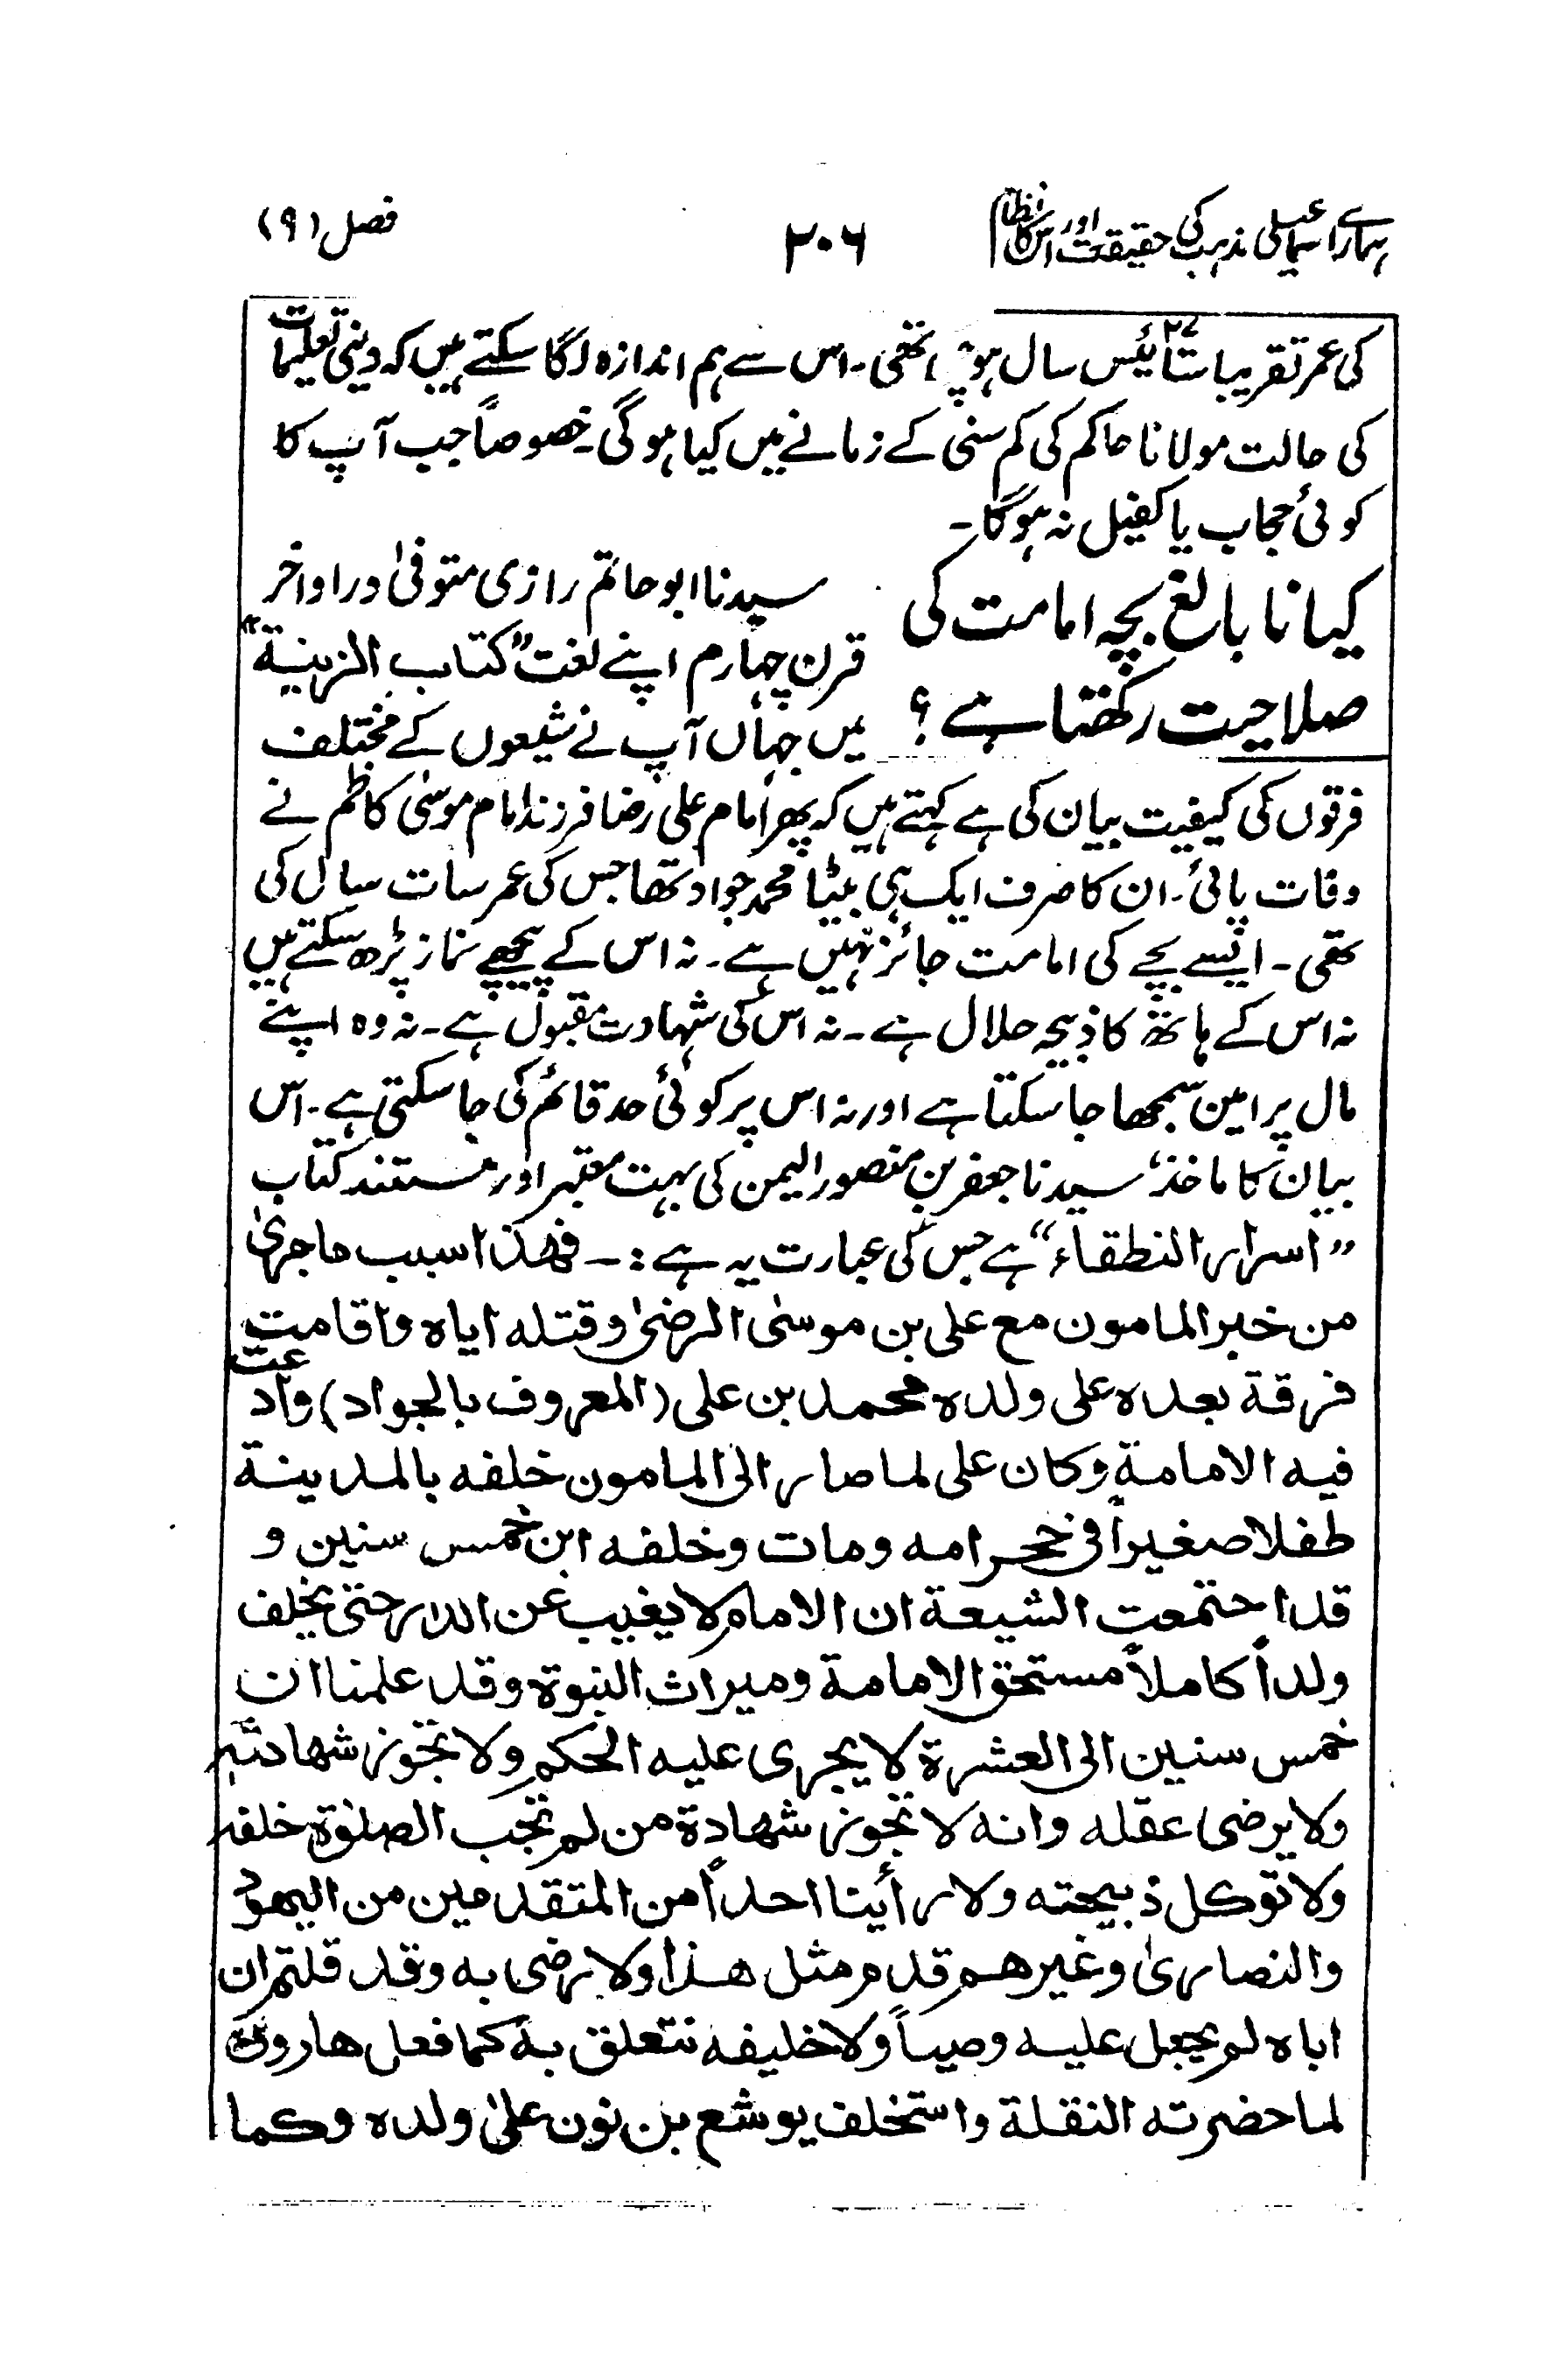 ہمارے اسماعیلی مذہب کی حقیقت اور اس کا نظام
۳۰۶
فصل (۹)
کی عمر تقریبا ستائیس ۲۷ سال تھی۔ اس سے ہم اندازہ لگا سکتے ہیں کہ دینی تعلیمات
کی حالت مولانا حاکم کی کم سنی کے زمانے میں کیا ہوگی۔ خصوصاً جب آپ کا
کوئی حجاب یا کفیل نہ ہوگا۔
کیا نابالغ بچہ امامت کی
صلاحیت رکھتا ہے؟
سیدنا ابو حاتم رازی متوفیٰ در اواخر
قرن چہارم اپنے لغت "کتاب الزینۃ"
میں جہاں آپ نے شیعوں کے مختلف
فرقوں کی کیفیت بیان کی ہے کہتے ہیں کہ پھر امام علی رضا فرزند امام موسیٰ کاظم نے
وفات پائی۔ ان کا صرف ایک ہی بیٹا محمد جواد تھا جس کی عمر سات سال کی
تھی۔ ایسے بچے کی امامت جائز نہیں ہے۔ نہ اس کے پیچھے نماز پڑھ سکتے ہیں
نہ اس کے ہاتھ کا ذبیحہ حلال ہے۔ نہ اس کی شہادت مقبول ہے۔ نہ وہ اپنے
مال پر امین سمجھا جا سکتا ہے اور نہ اس پر کوئی حد قائم کی جا سکتی ہے۔ اس
بیان کا ماخذ، سیدنا جعفر بن منصور الیمن کی بہت معتبر اور مستند کتاب
"اسرار النطقاء" ہے جس کی عبارت یہ ہے :۔ فهذا سبب ماجریٰ
من خبر المامون مع علی بن موسیٰ الرضیٰ وقتله اياه واقامت
فرقة بعده علی ولده محمد بن علی (المعروف بالجواد) وادعت
فيه الامامة وكان علی لما صار الی المامون خلفه بالمدينة
طفلا صغيراً فی حجر امه ومات وخلفه ابن خمس سنين و
قد اجتمعت الشيعة ان الامام لا يغيب عن الدار حتی يخلف
ولداً كاملاً مستحق الامامة وميراث النبوة وقد علمنا ان
خمس سنين الی العشرة لا يجری عليه الحكم ولا تجوز شهادته
ولا يرضی عقله وانه لا تجوز شهادة من لم تجب الصلوٰة خلفه
ولا توكل ذبيحته ولا رأينا احداً من المتقدمين من اليهود
والنصاریٰ وغيرهم قدم مثل هذا ولا رضی به وقد قلتم ان
اباه لم يجعل عليه وصياً ولا خليفه نتعلق به كما فعل هارون
لما حضرته النقلة واستخلف يوشع بن نون علیٰ ولده وكما